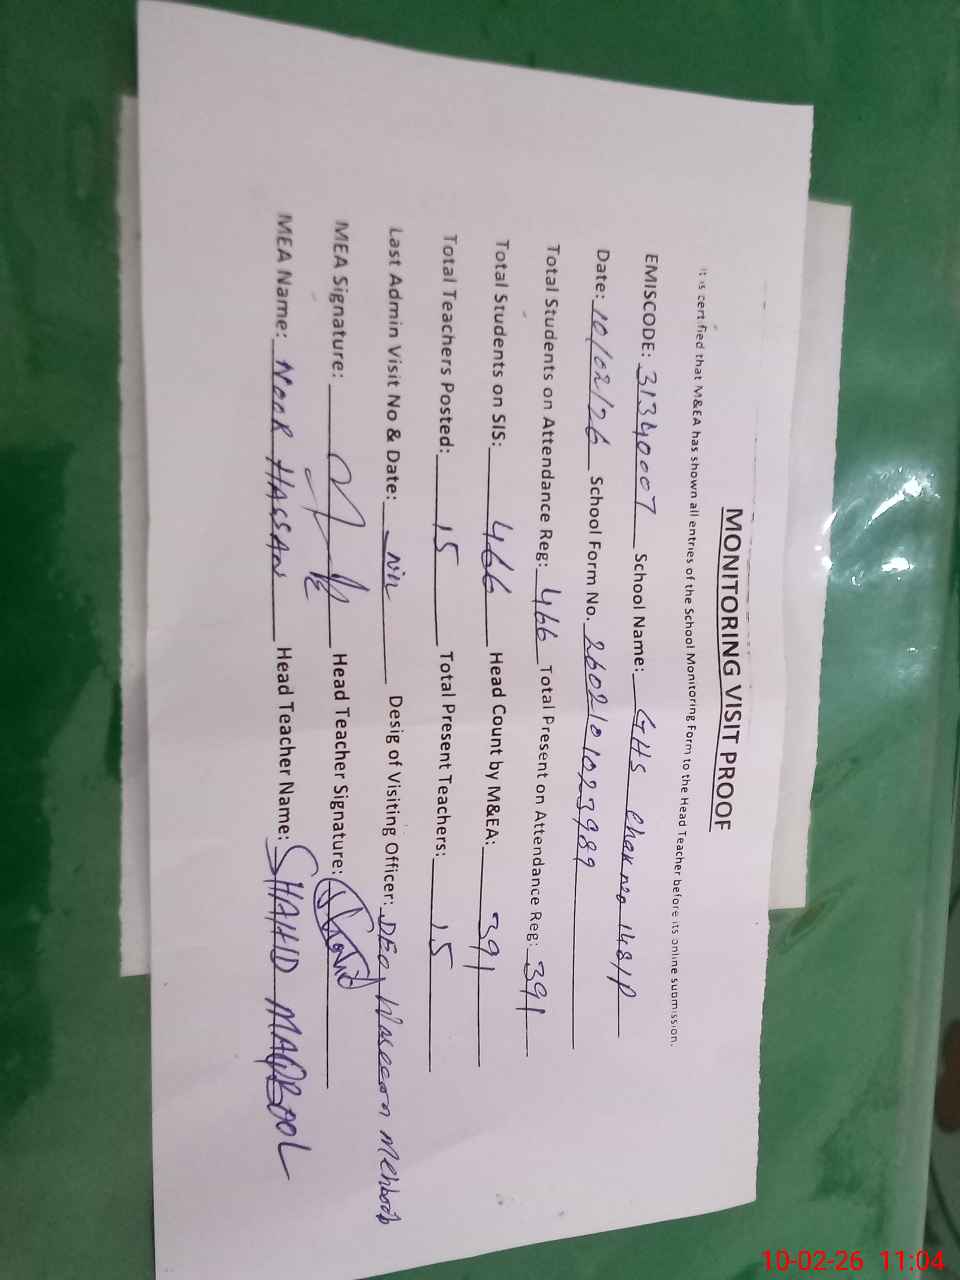 MONITORING VISIT PROOF
It is certified that M&EA has shown all entries of the School Monitoring Form to the Head Teacher before its online submission.
EMISCODE: 31340007 School Name: GHS Chak no 148/P
Date: 10/02/26 School Form No. 2602101023989
Total Students on Attendance Reg: 466 Total Present on Attendance Reg: 391
Total Students on SIS: 466 Head Count by M&EA: 391
Total Teachers Posted: 15 Total Present Teachers: 15
Last Admin Visit No & Date: Nil Desig of Visiting Officer: DEO, Waseem Mehboob
MEA Signature: Head Teacher Signature: Shahid
MEA Name: NOOR HASSAN Head Teacher Name: SHAHID MAQBOOL
10-02-26 11:04